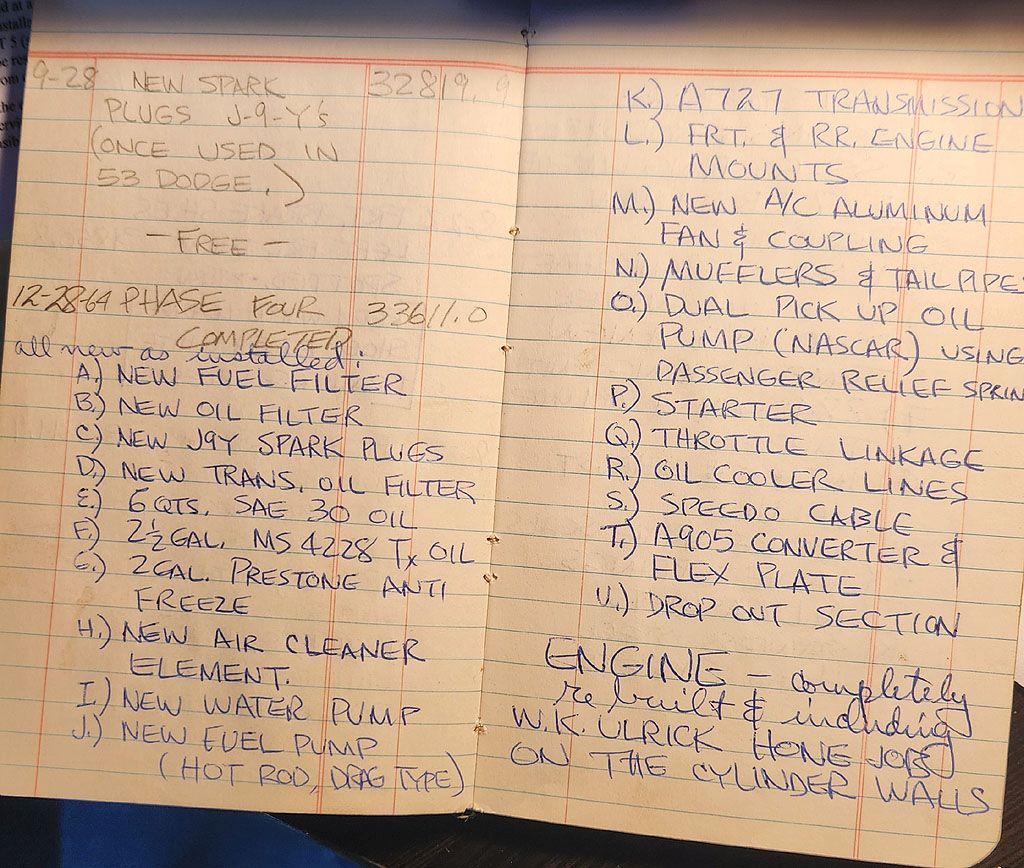 9-28 NEW SPARK 32819.9
PLUGS J-9-Y's
(ONCE USED IN
53 DODGE.)
- FREE -
12-28-64 PHASE FOUR 33611.0
COMPLETED
all new as installed:
A.) NEW FUEL FILTER
B.) NEW OIL FILTER
C.) NEW J9Y SPARK PLUGS
D.) NEW TRANS. OIL FILTER
E.) 6 QTS. SAE 30 OIL
F.) 2½ GAL. MS 4228 Tx OIL
G.) 2 GAL. PRESTONE ANTI
FREEZE
H.) NEW AIR CLEANER
ELEMENT.
I.) NEW WATER PUMP
J.) NEW FUEL PUMP
(HOT ROD, DRAG TYPE)
K.) A727 TRANSMISSION
L.) FRT. & RR. ENGINE
MOUNTS
M.) NEW A/C ALUMINUM
FAN & COUPLING
N.) MUFFLERS & TAIL PIPE
O.) DUAL PICK UP OIL
PUMP (NASCAR) USING
PASSENGER RELIEF SPRIN
P.) STARTER
Q.) THROTTLE LINKAGE
R.) OIL COOLER LINES
S.) SPEEDO CABLE
T.) A905 CONVERTER &
FLEX PLATE
U.) DROP OUT SECTION
ENGINE - completely
rebuilt & including
W.K. ULRICK HONE JOB
ON THE CYLINDER WALLS